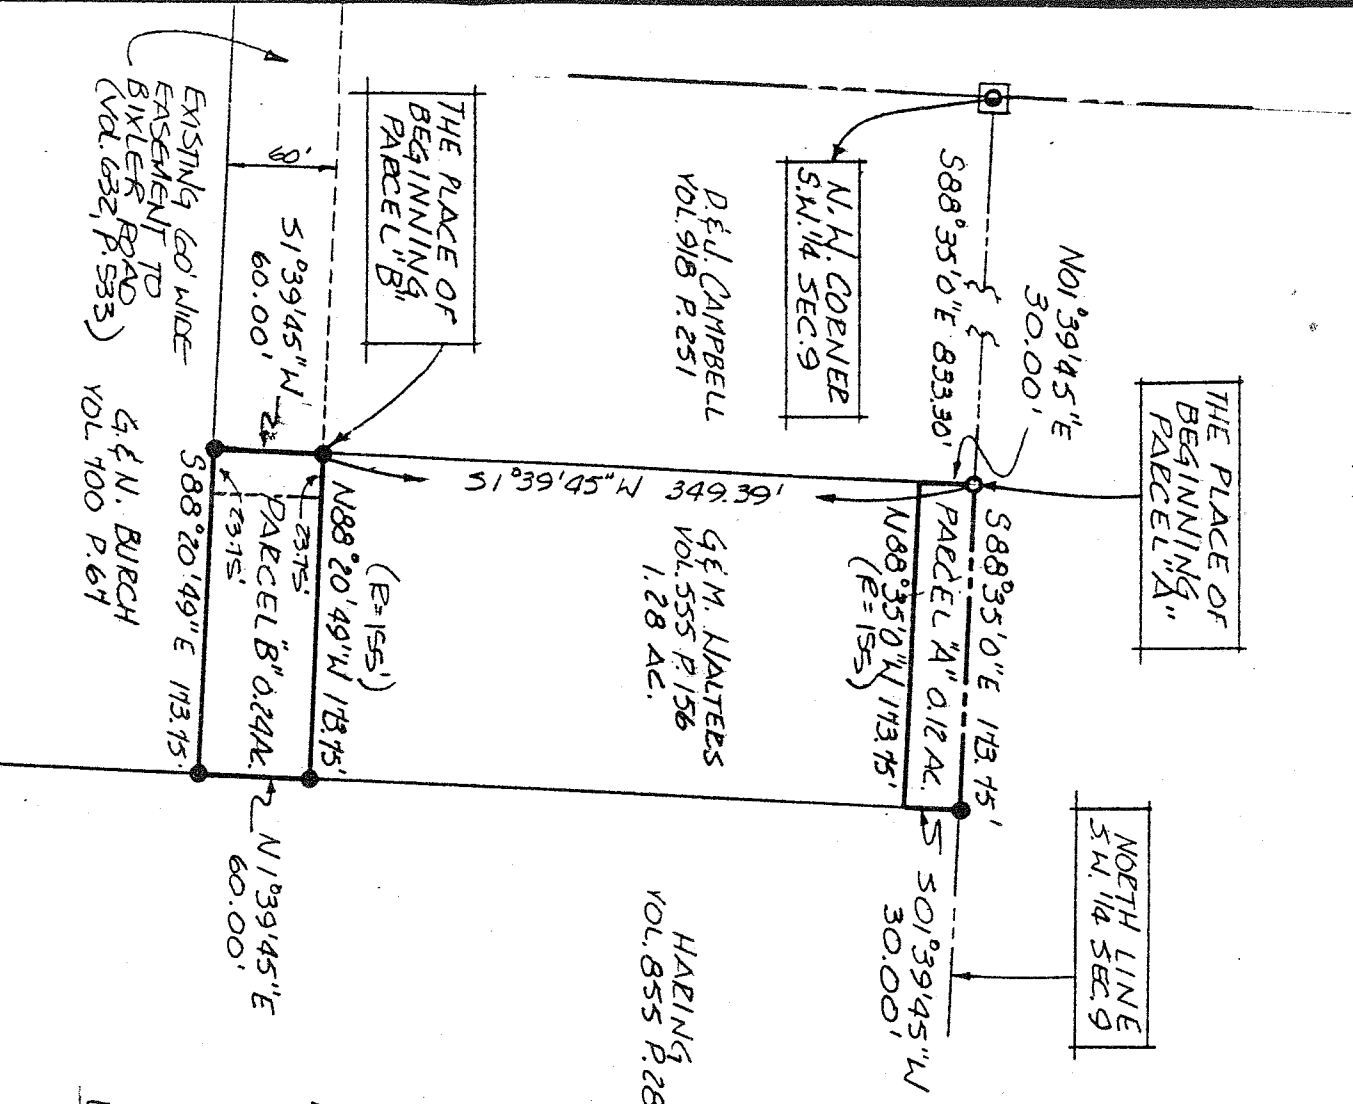 THE PLACE OF
BEGINNING
PARCEL "A"
NORTH LINE
S.W. 1/4 SEC. 9
N01°39'45"E
30.00'
S88°35'0"E 833.30'
S88°35'0"E 173.75'
N.W. CORNER
S.W. 1/4 SEC. 9
PARCEL "A" 0.12 AC.
N88°35'0"W 173.75'
(R=155')
S01°39'45"W
30.00'
D.&J. CAMPBELL
VOL. 918 P. 251
S1°39'45"W 349.39'
G.&M. WALTERS
VOL. 555 P. 156
1.28 AC.
HARING
VOL. 855 P. 28
THE PLACE OF
BEGINNING
PARCEL "B"
60'
S1°39'45"W
60.00'
(R=155')
N88°20'49"W 173.75'
23.75'
PARCEL "B" 0.24 AC.
23.75'
S88°20'49"E 173.75'
N1°39'45"E
60.00'
EXISTING 60' WIDE
EASEMENT TO
BIXLER ROAD
(VOL. 632, P. 533)
G.&N. BURCH
VOL 700 P. 64